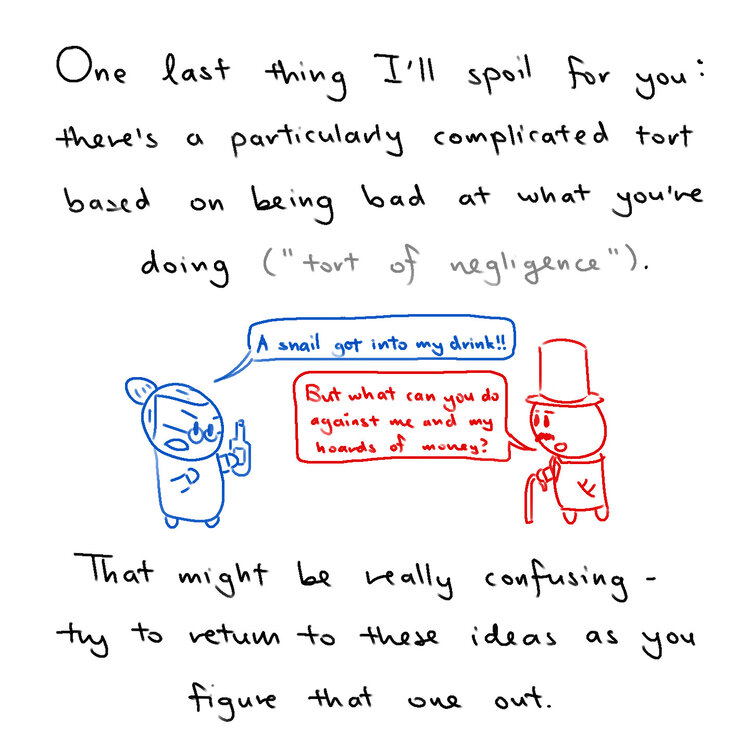 One last thing I'll spoil for you:
there's a particularly complicated tort
based on being bad at what you're
doing ("tort of negligence").
A snail got into my drink!!
But what can you do
against me and my
hoards of money?
That might be really confusing -
try to return to these ideas as you
figure that one out.